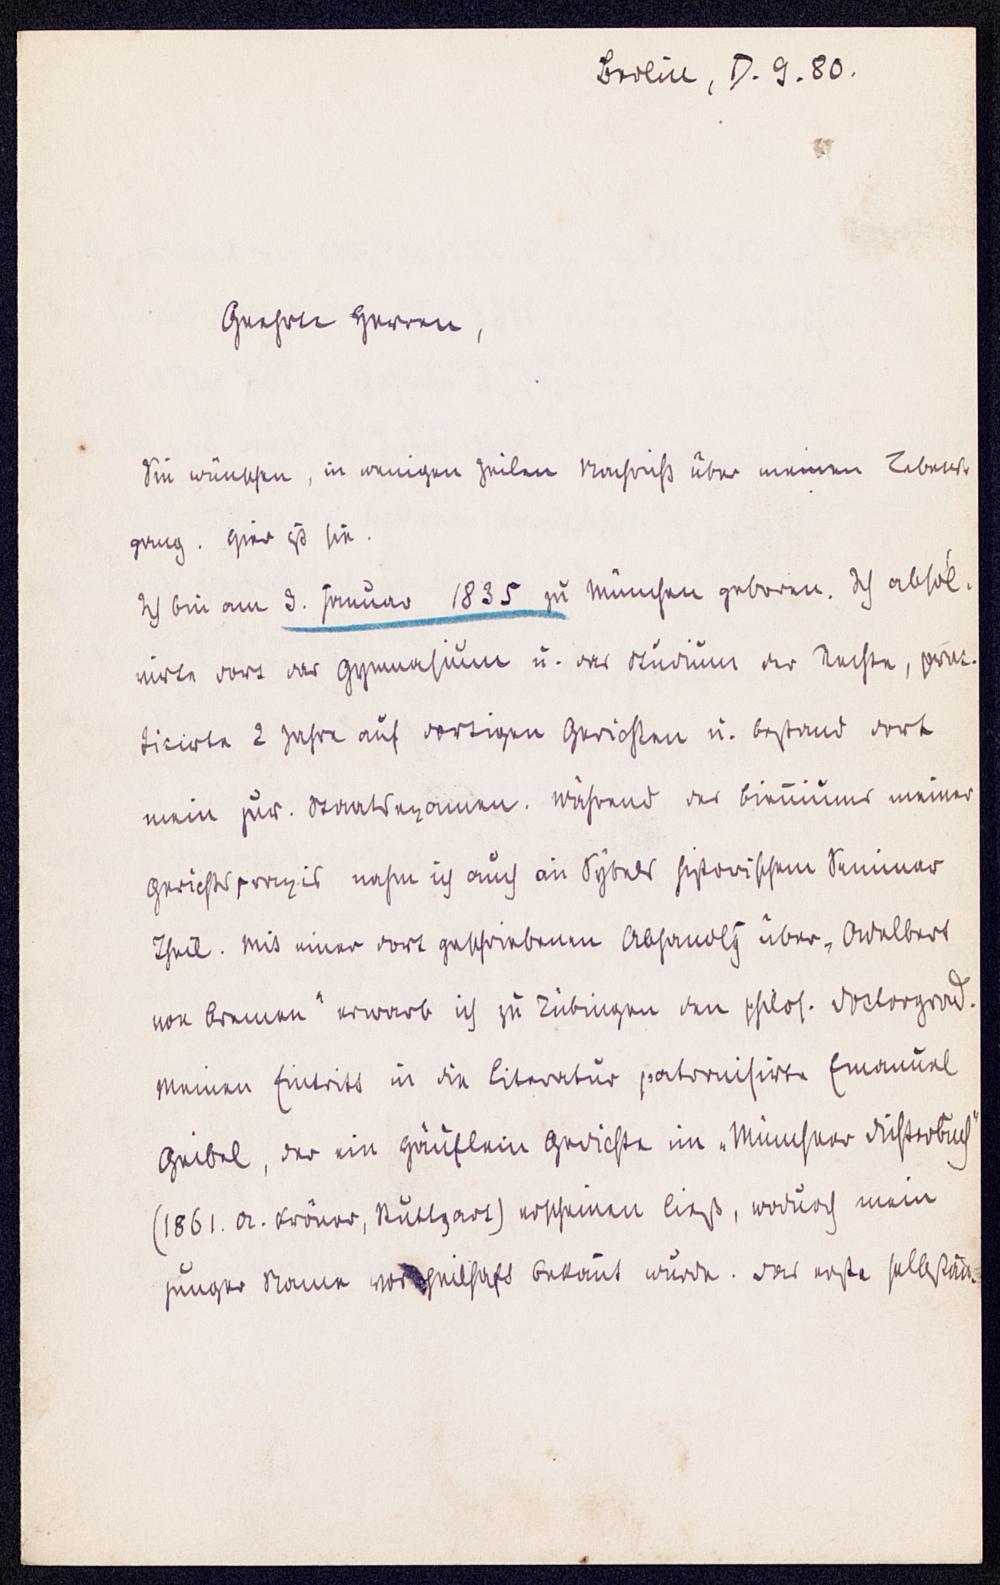 Berlin, D. 9. 80.
Geehrte Herren,
Sie wünschen, in wenigen Zeilen Nachricht über meinen Lebens-
gang. Hier ist sie.
Ich bin am 3. Januar 1835 zu München geboren. Ich absol-
virte dort das Gymnasium u. das Studium der Rechte, prac-
ticirte 2 Jahre auf dortigen Gerichten u. bestand dort
mein jur. Staatsexamen. Während des bieniums meiner
Gerichtspraxis nahm ich auch an Sybels historischem Seminar
Theil. Mit einer dort geschriebenen Abhandlg über „Adelbert
von Bremen" erwarb ich zu Tübingen den philos. Doctorgrad.
Meinen Eintritt in die Literatur patronisirte Emanuel
Geibel, der ein Häuflein Gedichte im „Münchner Dichterbuch"
(1861. A. Kröner, Stuttgart) erscheinen ließ, wodurch mein
junger Name vortheilhaft bekant wurde. Das erste selbstän-